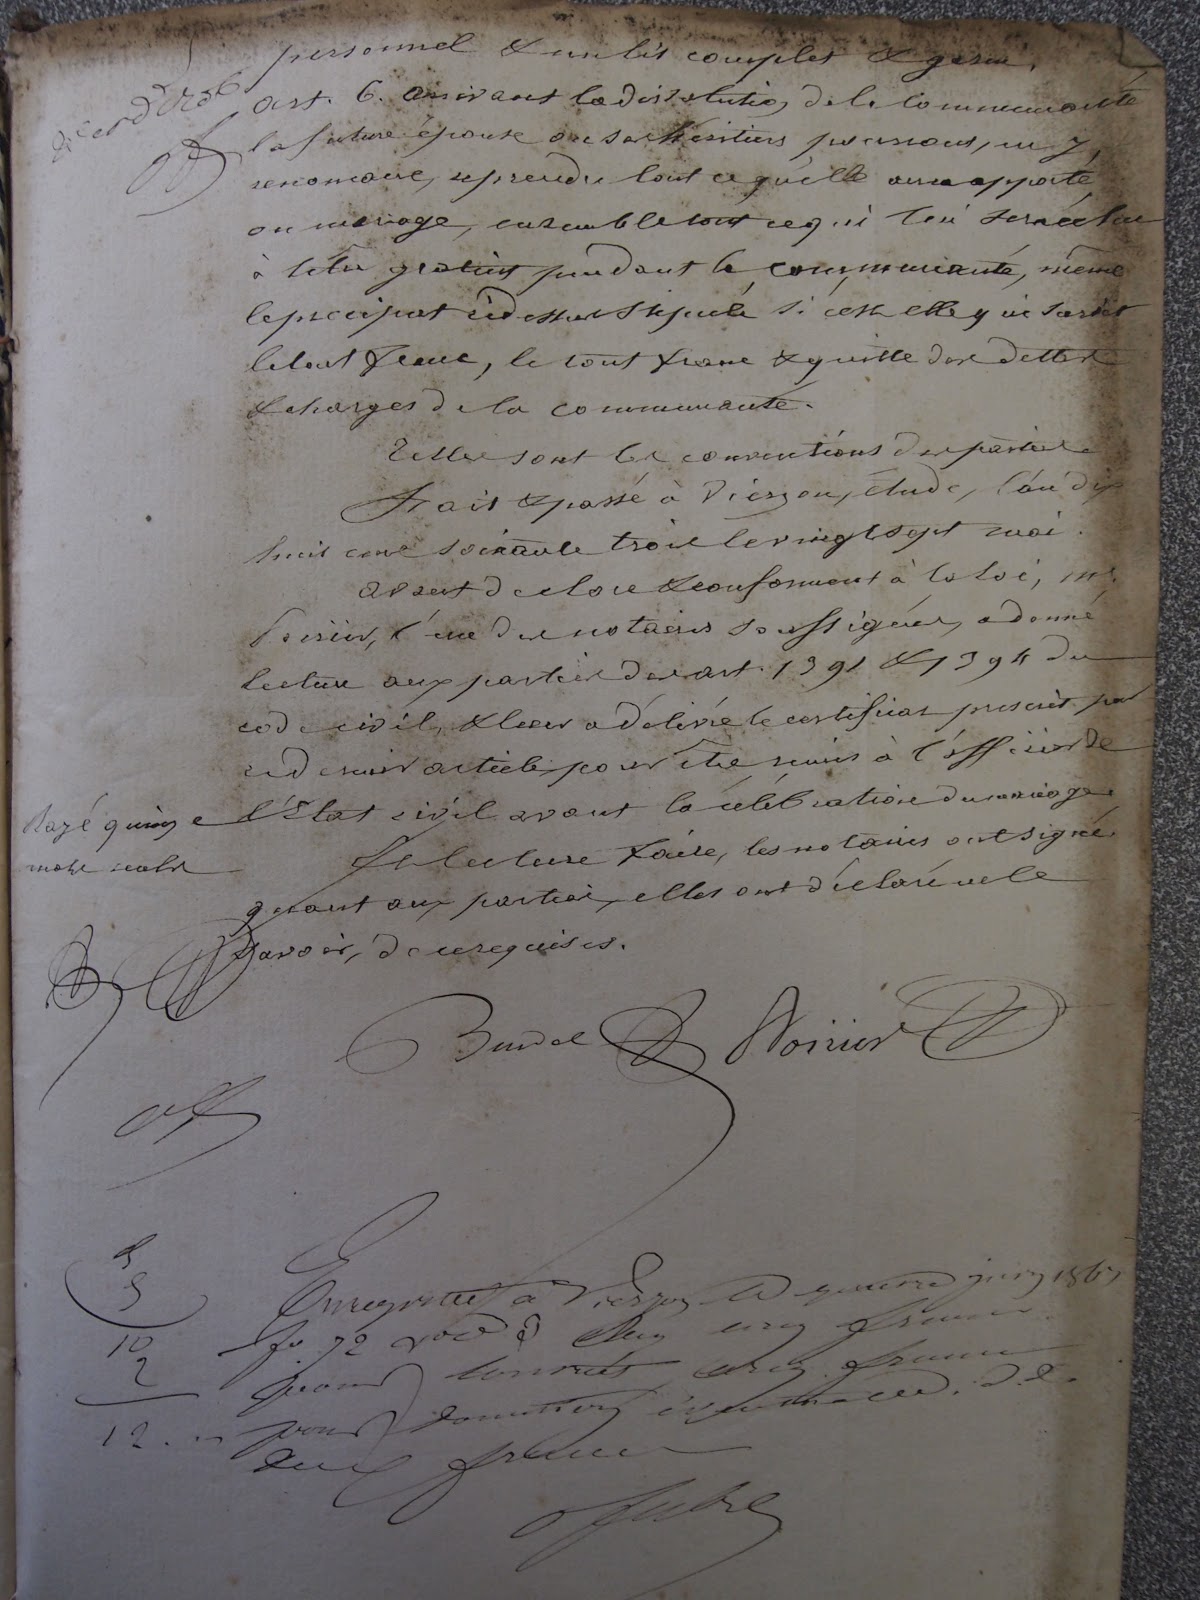 personnel & un lit complet & garni.
art. 6. arrivant la dissolution de la communauté
la future épouse ou ses héritiers pourront, en y
renonçant, reprendre tout ce qu'elle aura apporté
en mariage, ensemble tout ce qui lui sera échu
à titre gratuit pendant la communauté, même
le préciput ci dessus stipulé si c'est elle qui survit
le tout franc, le tout franc & quitte des dettes
& charges de la communauté.
Telles sont les conventions des parties
Fait & passé à Vierzon, étude, l'an dix
huit cent soixante trois le vingt sept mai.
avant de clore & conformément à la loi, Me
Poirier, l'un des notaires soussignés, a donné
lecture aux parties des art. 1391 & 1394 du
code civil, & leur a délivré le certificat prescrit par
ce dernier article pour être remis à l'officier de
l'Etat civil avant la célébration du mariage
Rayé quinze
mots nuls
Et lecture faite, les notaires ont signé
quant aux parties, elles ont déclaré ne le
savoir, de ce requises.
Poirier
5
5
10
2
12
Enregistré à Vierzon le juin 1863
fo 72 Reçu cinq francs
pour contrat, cinq francs
pour donation
deux francs